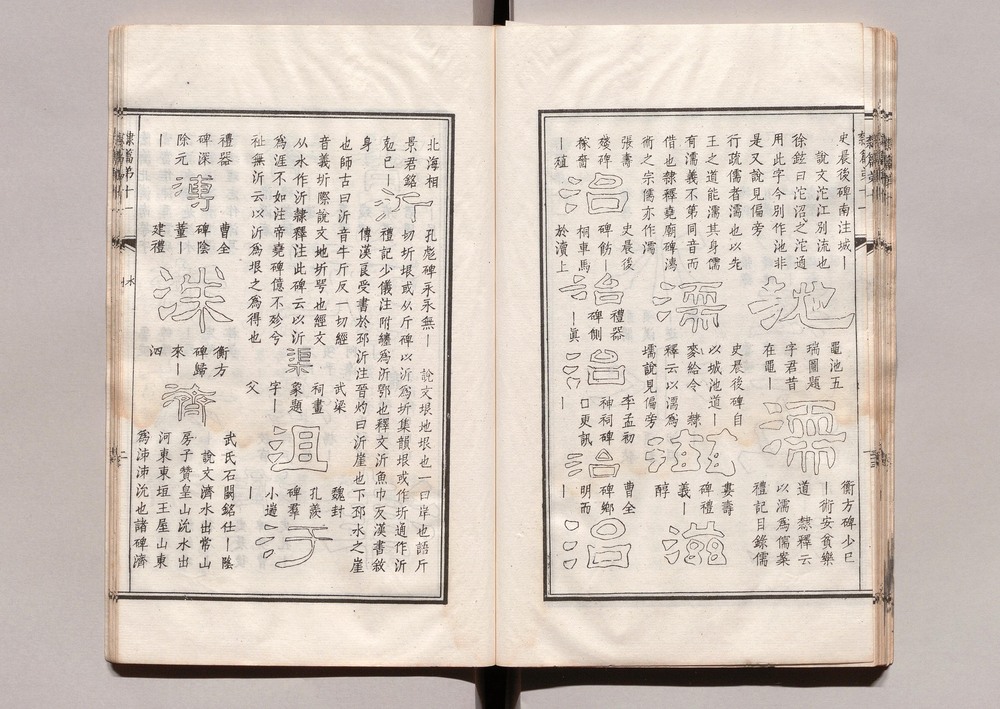 史晨後碑南注城〡
說文沱江別流也
徐鉉曰沱沼之沱通
用此字今別作池非
是又說見偏旁
池
黽池五
瑞圖題
字君昔
在黽〡
濡
衡方碑少㠯
〡術安貧樂
道 隸釋云
以濡爲儒案
禮記目錄儒
行疏儒者濡也以先
王之道能濡其身儒
有濡義不第同音而
借也隸釋堯廟碑濤
術之宗儒亦作濡
濡
史晨後碑自
以城池道〡
麥給令 隸
釋云以濡爲
壖說見偏旁
滋
婁壽
碑禮
義〡
醇
滋
張壽
殘碑
稼嗇
〡殖
治
史晨後
碑飭〡
桐車馬
於瀆上
治
禮器
碑側
〡眞
治
李孟初
神祠碑
口更訊
〡
治
曹全
碑鄉
明而
〡
治
隸篇第十一
北海相
景君銘
已〡
身
沂
孔彪碑永永無〡 說文垠地垠也一曰岸也語斤
切圻垠或从斤碑以沂爲圻集韻垠或作圻通作沂
禮記少儀注附纏爲沂鄂也釋文沂魚巾反漢書敘
傳漢良受書於邳沂注晉灼曰沂崖也下邳水之崖
也師古曰沂音牛斤反一切經
音義圻際說文地圻咢也經文
从水作沂隸釋注此碑云以沂
爲涯不如注帝堯碑億不殄兮
祉無沂云以沂爲垠之爲得也
渠
武梁
祠畫
象題
字〡
父
沮
魏封
孔羨
碑羣
小遄
〡
汙
禮器
碑深
除元
〡
漙
曹全
碑陰
董〡
建禮
洙
衡方
碑歸
來〡
泗
濟
武氏石闕銘仕〡陰
說文濟水出常山
房子贊皇山沇水出
河東東垣王屋山東
爲泲泲沇也諸碑濟
隸篇第十一
水
二